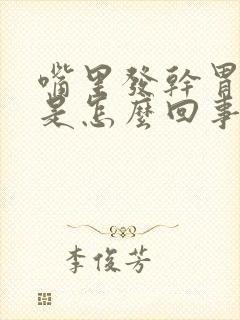 嘴里發幹胃
是怎麼回事
李俊芳